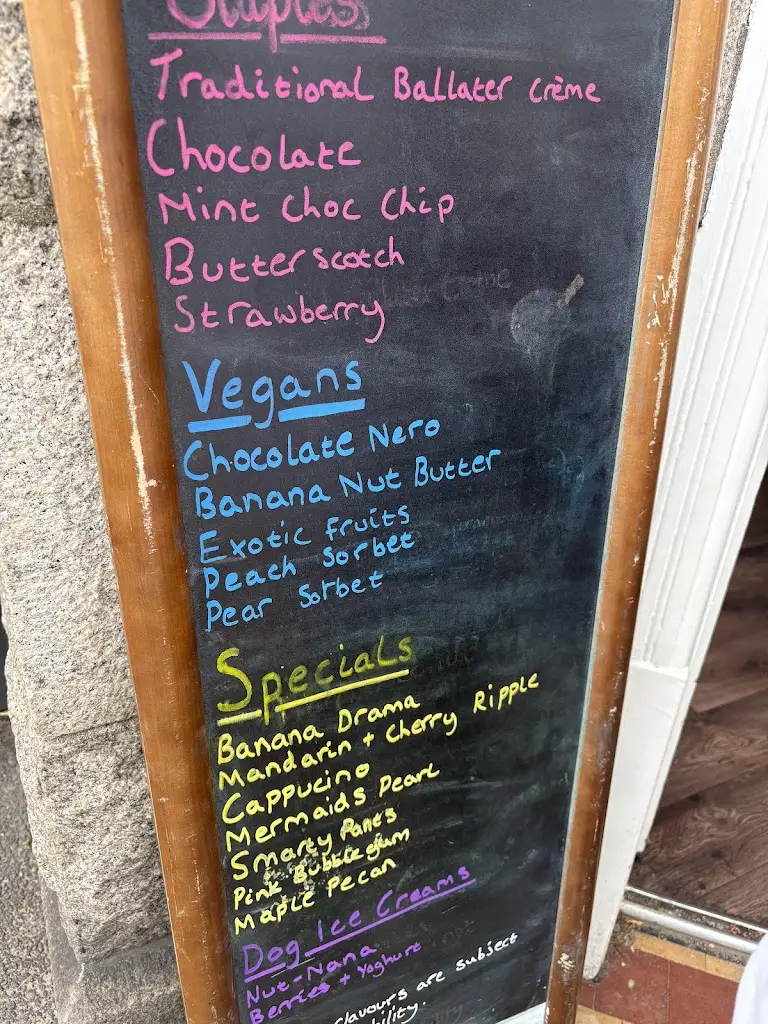 Staples
Traditional Ballater crème
Chocolate
Mint Choc Chip
Butterscotch
Strawberry
Vegans
Chocolate Nero
Banana Nut Butter
Exotic Fruits
Peach Sorbet
Pear Sorbet
Specials
Banana Drama
Mandarin + Cherry Ripple
Cappucino
Mermaids Pearl
Smarty Pants
Pink Bubblegum
Maple Pecan
Dog Ice Creams
Nut-Nana
Berries + Yoghurt
flavours are subject
bility.